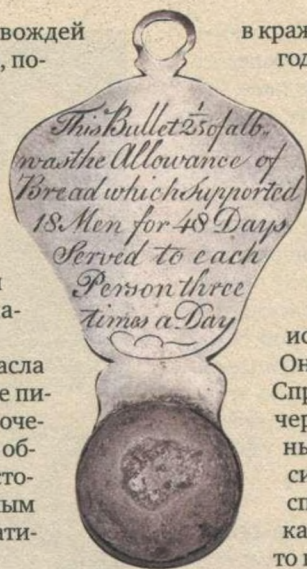 вождей
, по-
асла
е пи-
оче-
об-
сто-
ым
ати-
This Bullet 1/25 of a lb.
was the Allowance of
Bread which Supported
18 Men for 48 Days
Served to each
Person three
times a Day
в краж
год
ис
Он
Спр
чер
ны
си
сп
ка
то